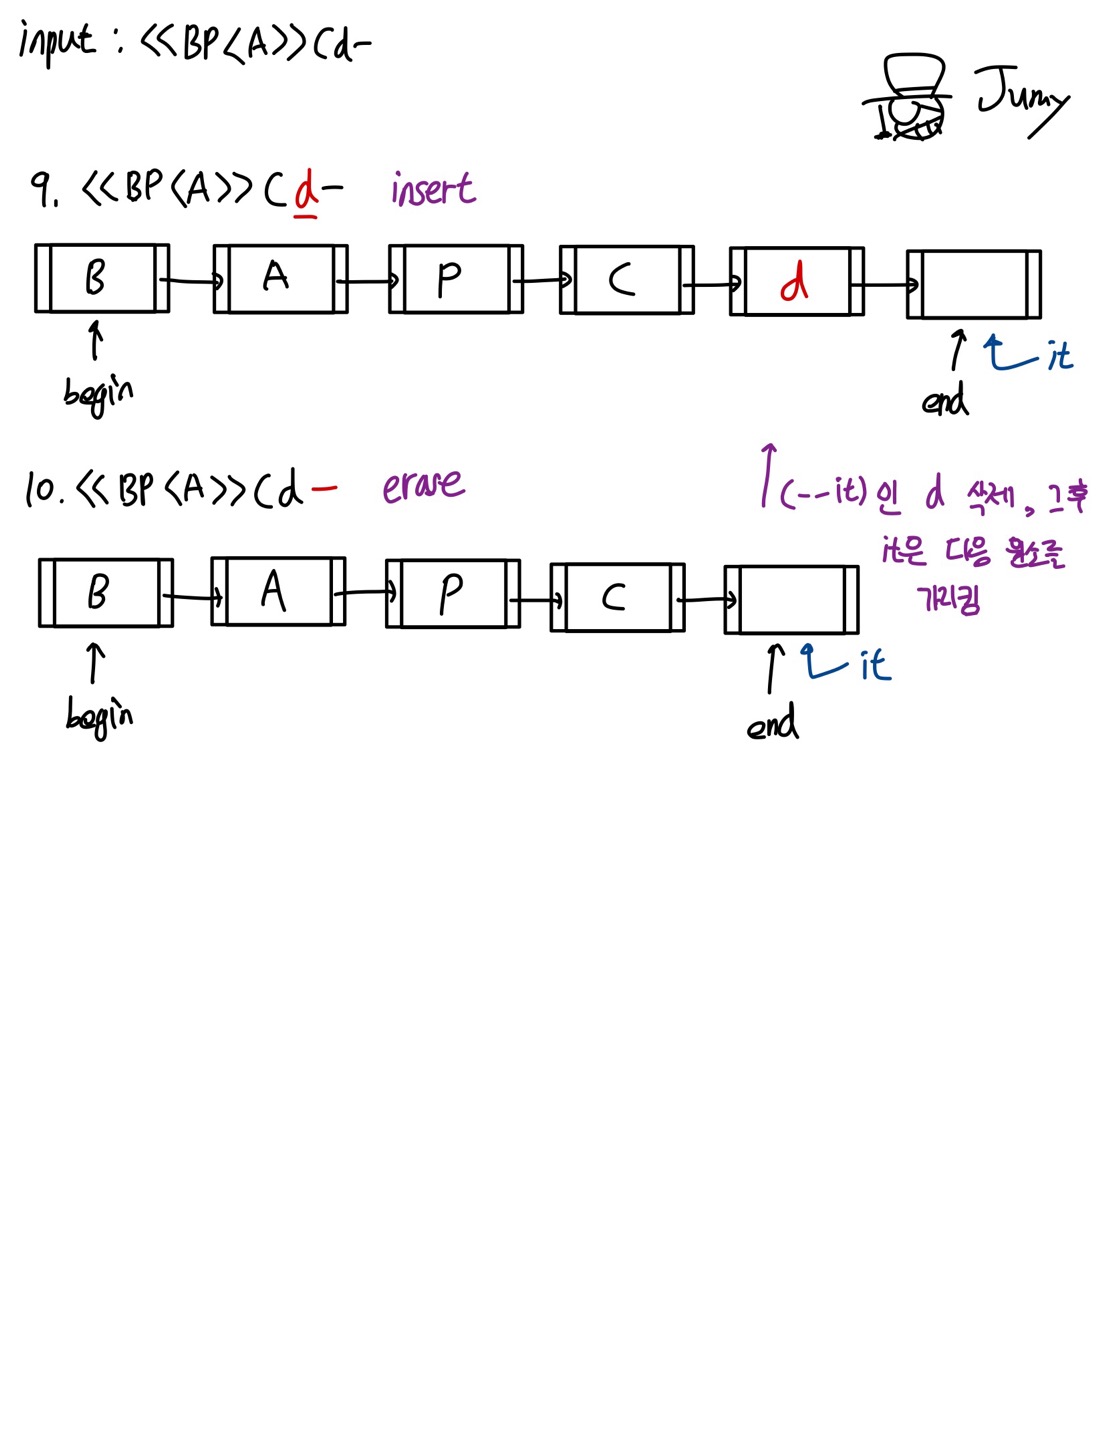 input : <<BP<A>>Cd-
Jumy
9. <<BP<A>>Cd- insert
B A P C d
begin
it
end
10. <<BP<A>>Cd- erase
(--it)인 d 삭제, 그후
it은 다음 원소를
가리킴
B A P C
begin
it
end